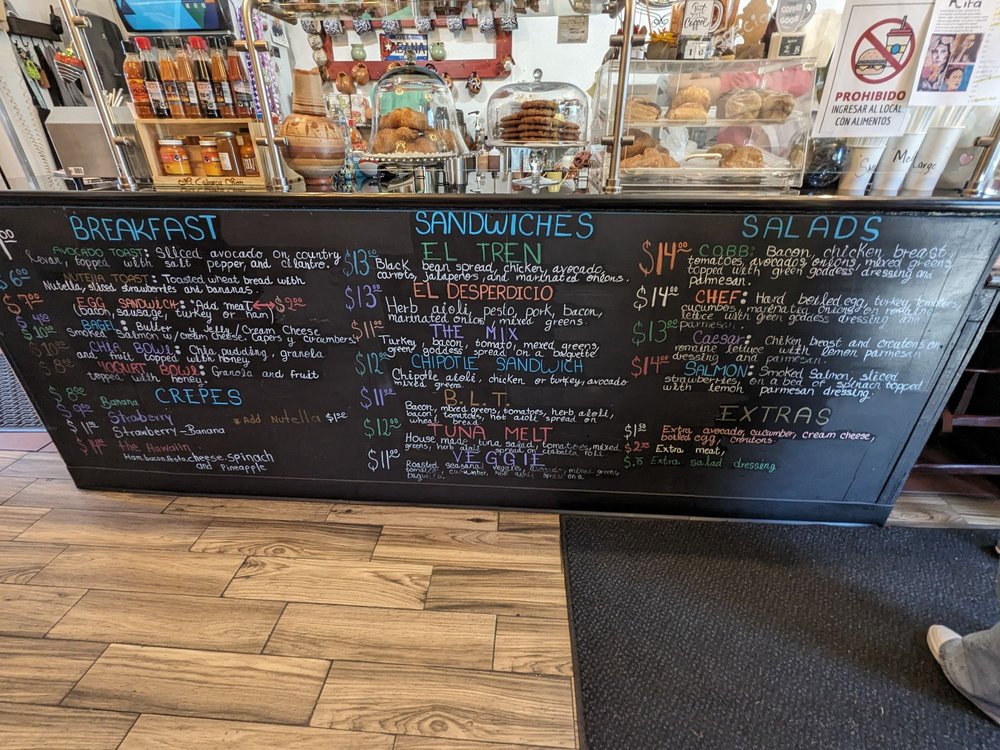 Best
Coffee
COFFEE
GOOD
PROHIBIDO
INGRESAR AL LOCAL
CON ALIMENTOS.
Large
BREAKFAST
AVOCADO TOAST: Sliced avocado on country
topped with salt pepper, and cilantro.
$6.00
NUTELLA TOAST: Toasted wheat bread with
Nutella, sliced strawberries and bananas.
$7.00
EGG SANDWICH: Add meat $2.00
(bacon, sausage, turkey or ham)
BAGEL: Butter y Jelly/Cream Cheese
Smoked Salmon w/cream cheese, capers y cucumbers
CHIA BOWL: Chia pudding, granola
and fruit topped with honey
YOGURT BOWL: Granola and fruit
topped with honey.
CREPES
Banana
Straberry
*Add Nutella $1.50
Strawberry-Banana
The Hawaiin
Ham, bacon, Pesto, cheese, spinach
and Pineapple
SANDWICHES
EL TREN
$13.00
Black bean spread, chicken, avocado,
carrots, jalapeños and marinated onions.
EL DESPERDICIO
$13.00
Herb aioli, pesto, pork, bacon,
marinated onion, mixed greens.
THE MIX
$11.00
Turkey, bacon, tomato, mexed greens,
green goddess spread on a baguette
CHIPOTLE SANDWICH
$12.00
Chipotle aioli, chicken or turkey, avocado
mixed greens
B.L.T.
$11.00
Bacon, mixed greens, tomatoes, herb aioli,
wheat bread
TUNA MELT
$12.00
House made tuna salad, tomatoes, mixed
greens, herb aioli spread on ciabatta roll.
VEGGIE
$11.00
Roasted veggies, avocado, mixed greens,
SALADS
$14.00
COBB: Bacon, chicken breast,
tomatoes, avocados onions, mixed greens,
topped with green goddess dressing and
parmesan.
$14.00
CHEF: Hard boiled egg, turkey, tomatoe,
cucumbers, marinated onions on romaine
lettuce with green goddess dressing and
parmesan.
$13.00
Caesar: Chicken breast and croutons on
romaine lettuce with lemon parmesan
dressing and parmesan.
$14.00
SALMON: Smoked Salmon, sliced
strawberries, on a bed of spinach topped
with lemon parmesan dressing.
EXTRAS
$1.50
Extra avocado, cucumber, cream cheese,
boiled egg, croutons.
$2.00 Extra meat,
$.75 Extra salad dressing